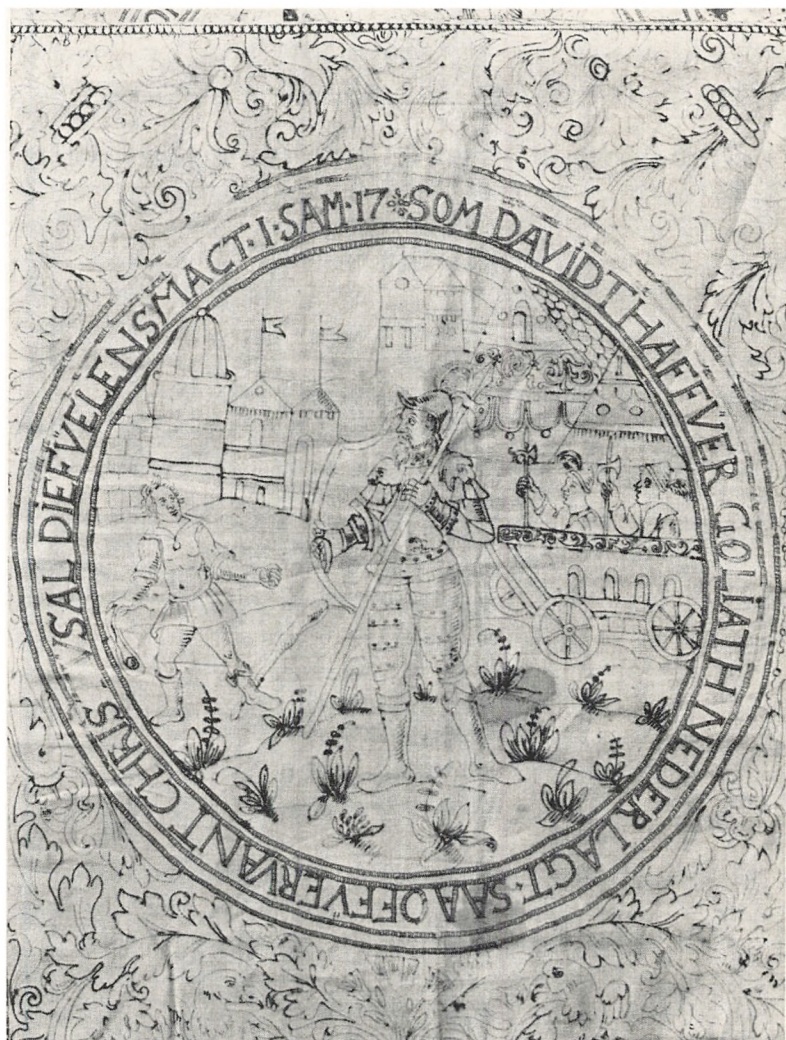 SOM DAVIDT HAFFVER GOLIATH NEDERLAGT · SAA OFFVERVANT CHRISTVS AL DIEFVELENS MACT · I · SAM · 17